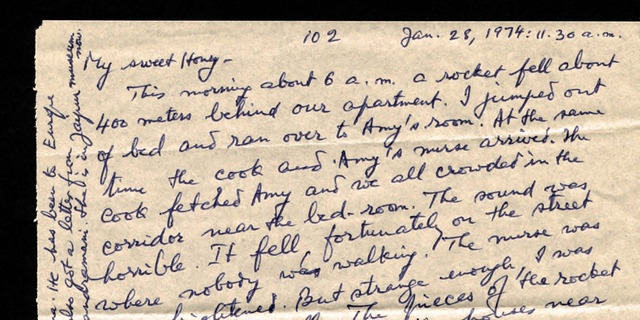 102
Jan. 28, 1974: 11.30 a.m.
My sweet Honey-
This morning about 6 a.m. a rocket fell about
400 meters behind our apartment. I jumped out
of bed and ran over to Amy's room. At the same
time the cook and Amy's nurse arrived. The
cook fetched Amy and we all crowded in the
corridor near the bed-room. The sound was
horrible. It fell fortunately on the street
where nobody was walking. The nurse was
But strange enough, I was
The pieces of the rocket
houses near
He has been to Europe
also got a letter from
He is in Jaipur museum
now.